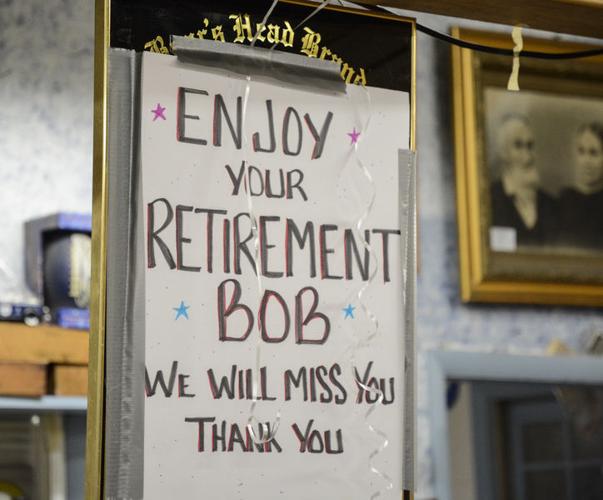 Boar's Head Brand
ENJOY
YOUR
RETIREMENT
BOB
WE WILL MISS YOU
THANK YOU